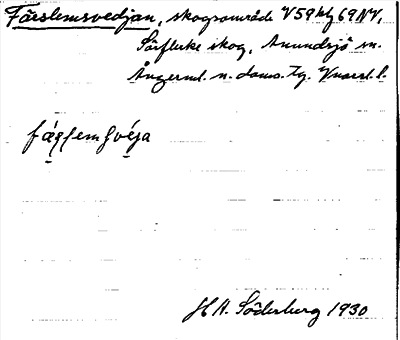 Färslemsvedjan, skogsområde V59 kbg 69NV,
Sörflärke skog, Anundsjö sn.
Ångerml. n. doms. Tg. Vnorrl. l.
fǽʂʂlemsvéja
H A. Söderberg 1930